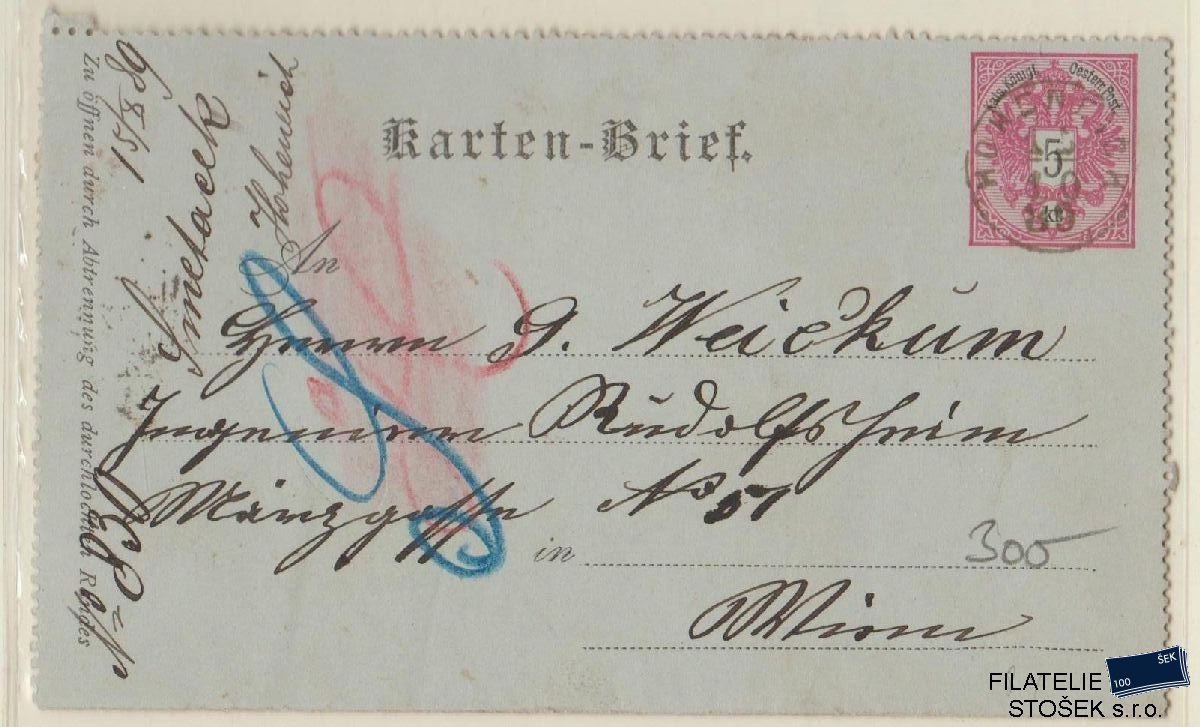 Karten-Brief.
Kais. Königl. Oesterr. Post
5
kr.
HOHENEICH
An
Herrn G. Weickum
Ingenieur Rudolfsheim
Märzgasse No 51
in
Wien
300
Zu öffnen durch Abtrennung des durchlochten Randes
15/8 89
Smetacek
Hoheneich
FILATELIE
STOŠEK s.r.o.
100
ŠEK